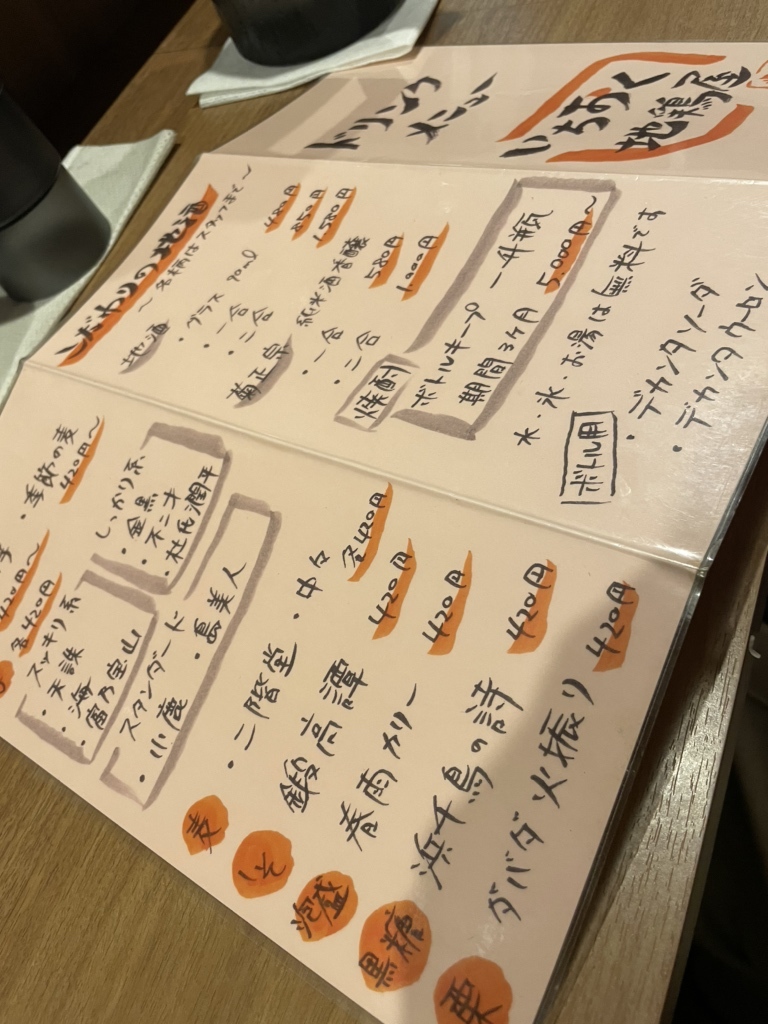 いちおく
地鶏屋
ドリンク
メニュー
こだわりの地酒
〜名柄はスタッフまで〜
地酒
・グラス 90ml 480円
・一合 850円
・二合 1,580円
菊正宗 純米酒香醸
・一合 580円
・二合 1,000円
焼酎
ボトルキープ 一升瓶
期間3ヶ月 5,000円〜
水・氷・お湯は無料です
ボトル用
・デカンタソーダ
・デカンタウーロン
・季節の麦
420円〜
420円〜
各420円
スッキリ系
・天誅
・海
・富乃宝山
しっかり系
・金黒
・不二才
・杜氏潤平
スタンダード
・小鹿 ・島美人
麦 ・二階堂 ・中々 各420円
しそ 鍛高譚 420円
泡盛 春雨カリー 420円
黒糖 浜千鳥の詩 420円
栗 ダバダ火振り 420円